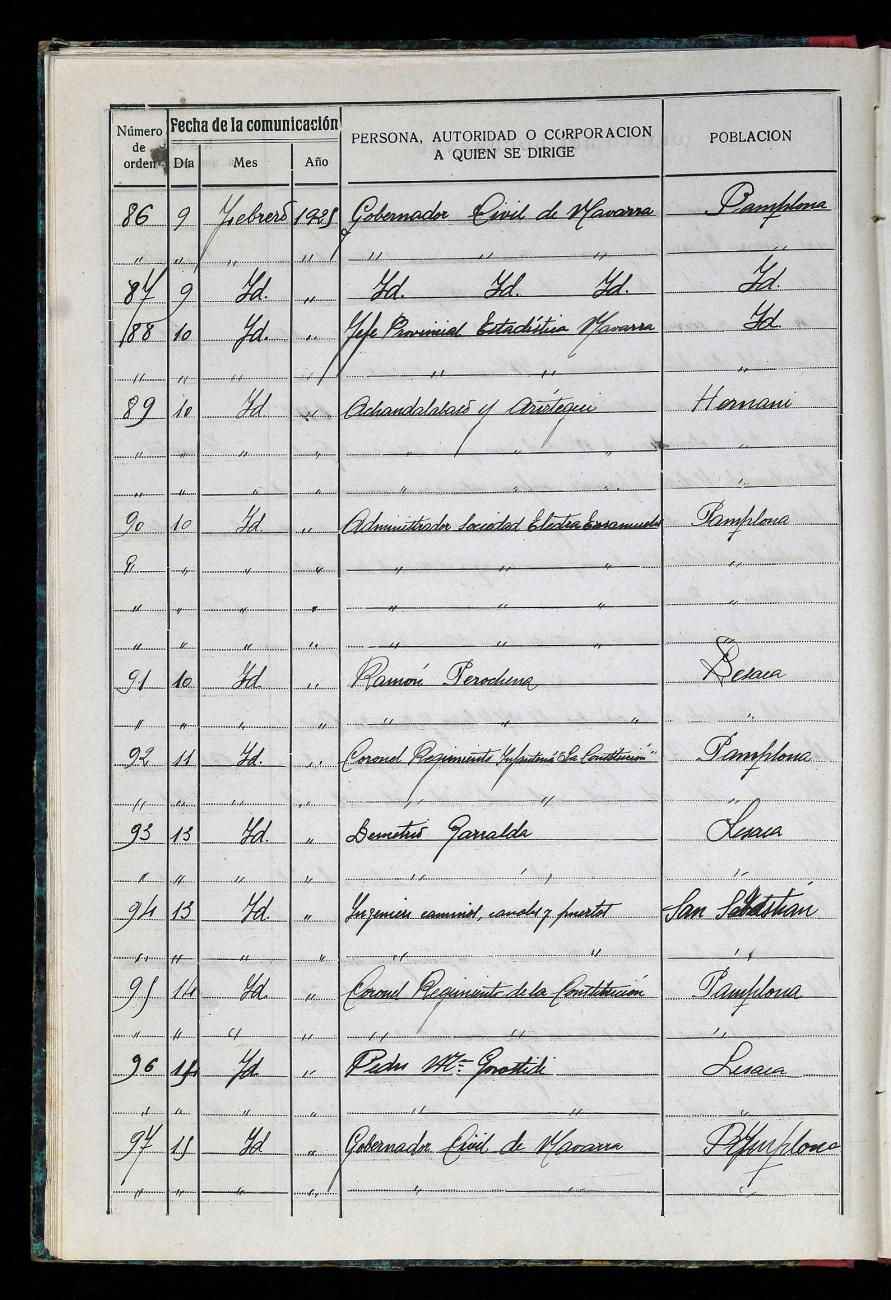 Número de orden Fecha de la comunicación PERSONA, AUTORIDAD O CORPORACION A QUIEN SE DIRIGE POBLACION
Día Mes Año
86 9 Febrero 1925 Gobernador Civil de Navarra Pamplona
" " " " " " " "
87 9 Id. " Id. Id. Id. Id.
88 10 Id. " Jefe Provincial Estadística Navarra Id.
" " " " " " "
89 10 Id " y Aristegui Hernani
" " " " " " " "
" " " " " " " "
90 10 Id " Administrador Sociedad Electra Pamplona
" " " " " " "
" " " " " " " "
" " " " " " " "
91 10 Id " Ramón Perochena Lesaca
" " " " " " " "
92 11 Id. " Coronel Regimiento Infantería "La Constitución" Pamplona
" " " " " " "
93 13 Id. " Demetrio Garralda Lesaca
" " " " " " "
94 13 Id. " Ingeniero caminos, canales y puertos San Sebastián
" " " " " " "
95 14 Id. " Coronel Regimiento de la Constitución Pamplona
" " " " " " "
96 Id. " Pedro Mª Gorostidi Lesaca
" " " " " " "
97 15 Id " Gobernador Civil de Navarra Pamplona
" " " " " " "